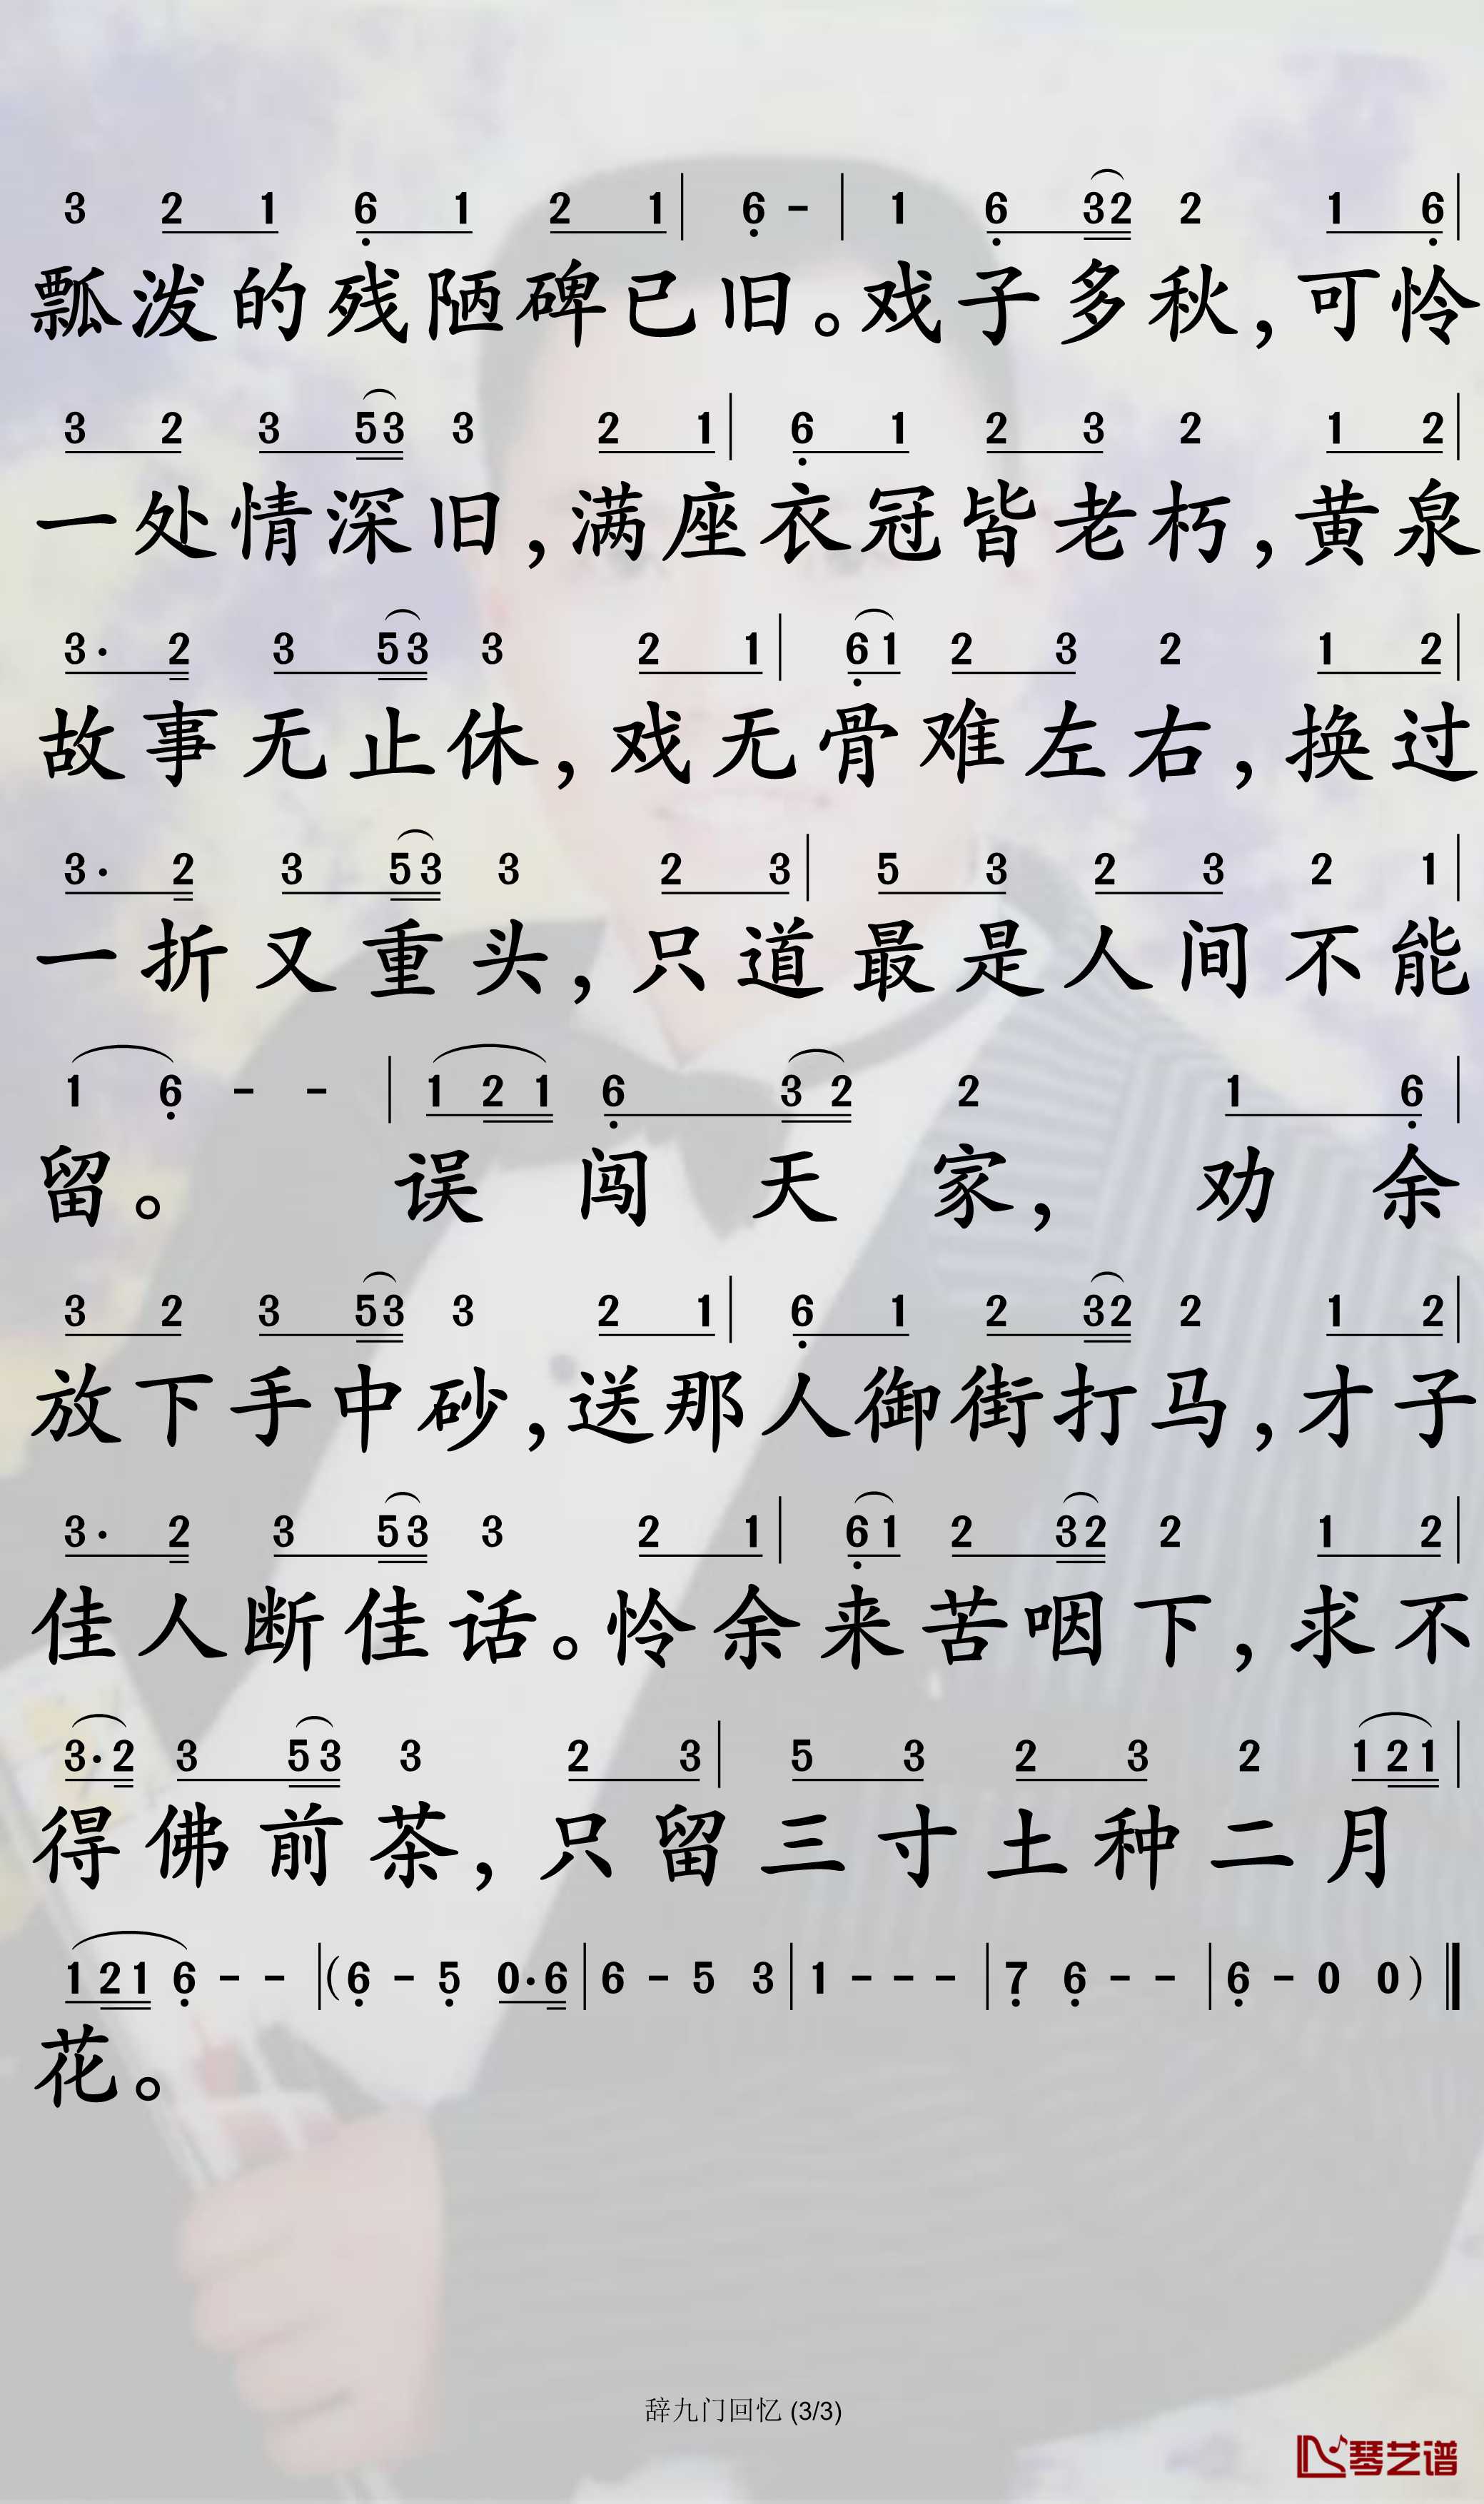 3 2 1 6 1 2 1 | 6 - | 1 6 32 2 1 6 |
瓢泼的残陋碑已旧。戏子多秋,可怜
3 2 3 53 3 2 1 | 6 1 2 3 2 1 2 |
一处情深旧,满座衣冠皆老朽,黄泉
3· 2 3 53 3 2 1 | 61 2 3 2 1 2 |
故事无止休,戏无骨难左右,换过
3· 2 3 53 3 2 3 | 5 3 2 3 2 1 |
一折又重头,只道最是人间不能
1 6 - - | 1 2 1 6 3 2 2 1 6 |
留。误闯天家,劝余
3 2 3 53 3 2 1 | 6 1 2 32 2 1 2 |
放下手中砂,送那人御街打马,才子
3· 2 3 53 3 2 1 | 61 2 32 2 1 2 |
佳人断佳话。怜余来苦咽下,求不
3·2 3 53 3 2 3 | 5 3 2 3 2 121 |
得佛前茶,只留三寸土种二月
121 6 - - | (6 - 5 0·6 | 6 - 5 3 | 1 - - - | 7 6 - - | 6 - 0 0) ‖
花。
辞九门回忆 (3/3)
琴艺谱